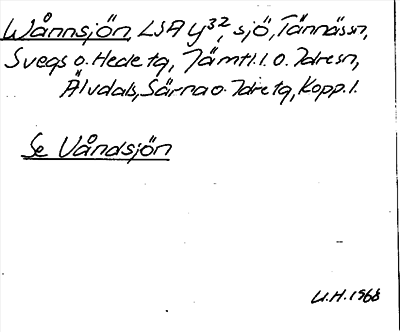 Wånnsjön, LSA Y³², sjö, Tännässn,
Svegs o. Hede tg, Jämtl.l. o. Idresn,
Älvdals, Särna o. Idre tg, Kopp.l.
Se Våndsjön
U.H. 1968